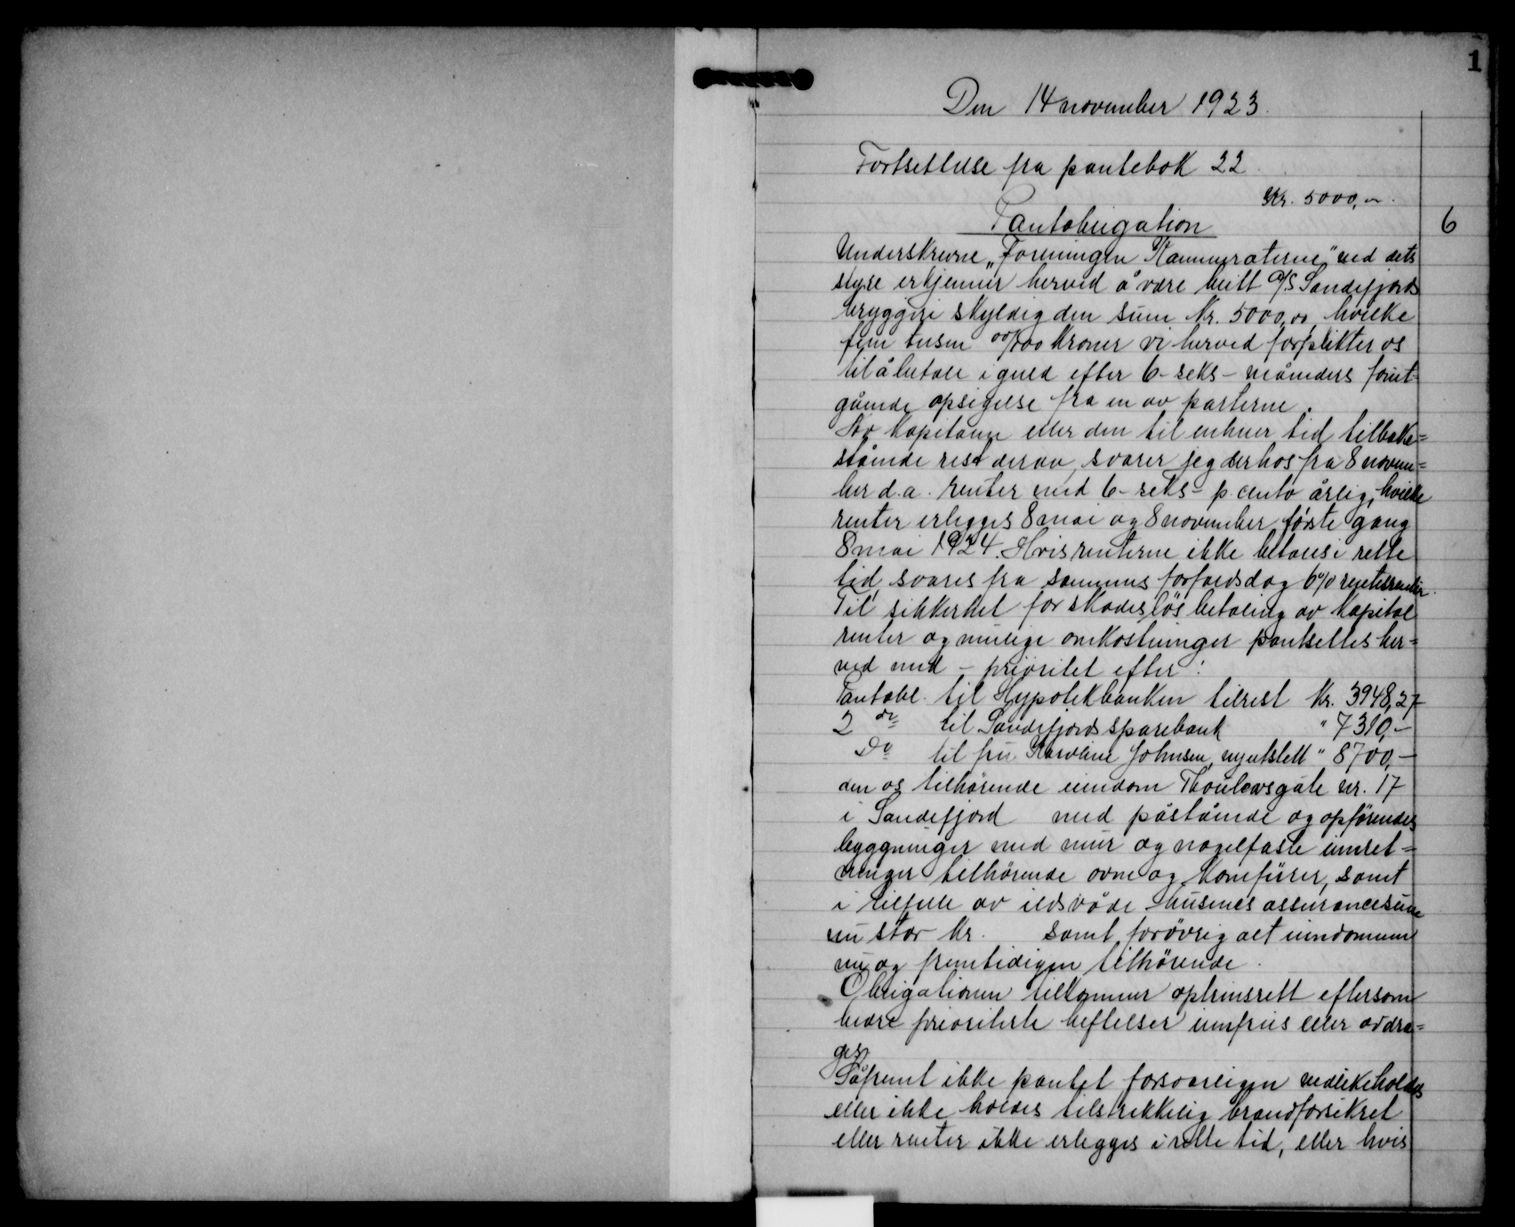 1
Den 14 november 1923.
Fortsettelse fra pantebok 22
Kr. 5000,00.
Pantobligation
6
Underskrevne „Foreningen Kammeraterne" ved dets
styre erkjenner herved å være blitt A/S Sandefjords
bryggeri skyldig den sum Kr. 5000,00, hvilke
fem tusen 00/100 kroner vi herved forplikter os
til å betale i guld efter 6 - seks - måneders forut-
gående opsigelse fra en av parterne.
Av kapitalen eller den til enhver tid tilbake=
stående rest derav, svarer jeg derhos fra 8 novem=
ber d.a. renter med 6 - seks - p. cento årlig, hvilke
renter erlegges 8 mai og 8 november første gang
8 mai 1924. Hvis renterne ikke betales i rette
tid, svares fra sammes forfaldsdag 6% rentesrenter.
Til sikkerhet for skadesløs betaling av kapital
renter og mulige omkostninger pantsettes her=
ved med - prioritet efter:
Pantobl. til Hypotekbanken tilrest Kr. 3948,27
2 do til Sandefjords sparebank " 7310,-
Do til fru Karoline Johnsen, nyutstett " 8700,-
den os tilhørende eiendom Thaulowsgate nr. 17
i Sandefjord med påstående og opførendes
byggninger med mur og nagelfaste innret=
ninger tilhørende ovne og komfürer, samt
i tilfelle av ildsvåde husenes assurancesum
nu stor Kr. samt forøvrig alt eiendommen
nu og fremtidigen tilhørende.
Obligationen tilkommer oprinsrett eftersom
bedre prioriterte heftelser innfries eller avdra=
ges.
Såfremt ikke pantet forsvarligen vedlikeholdes
eller ikke holdes tilstrekkelig brandforsikret
eller renter ikke erlegges i rette tid, eller hvis